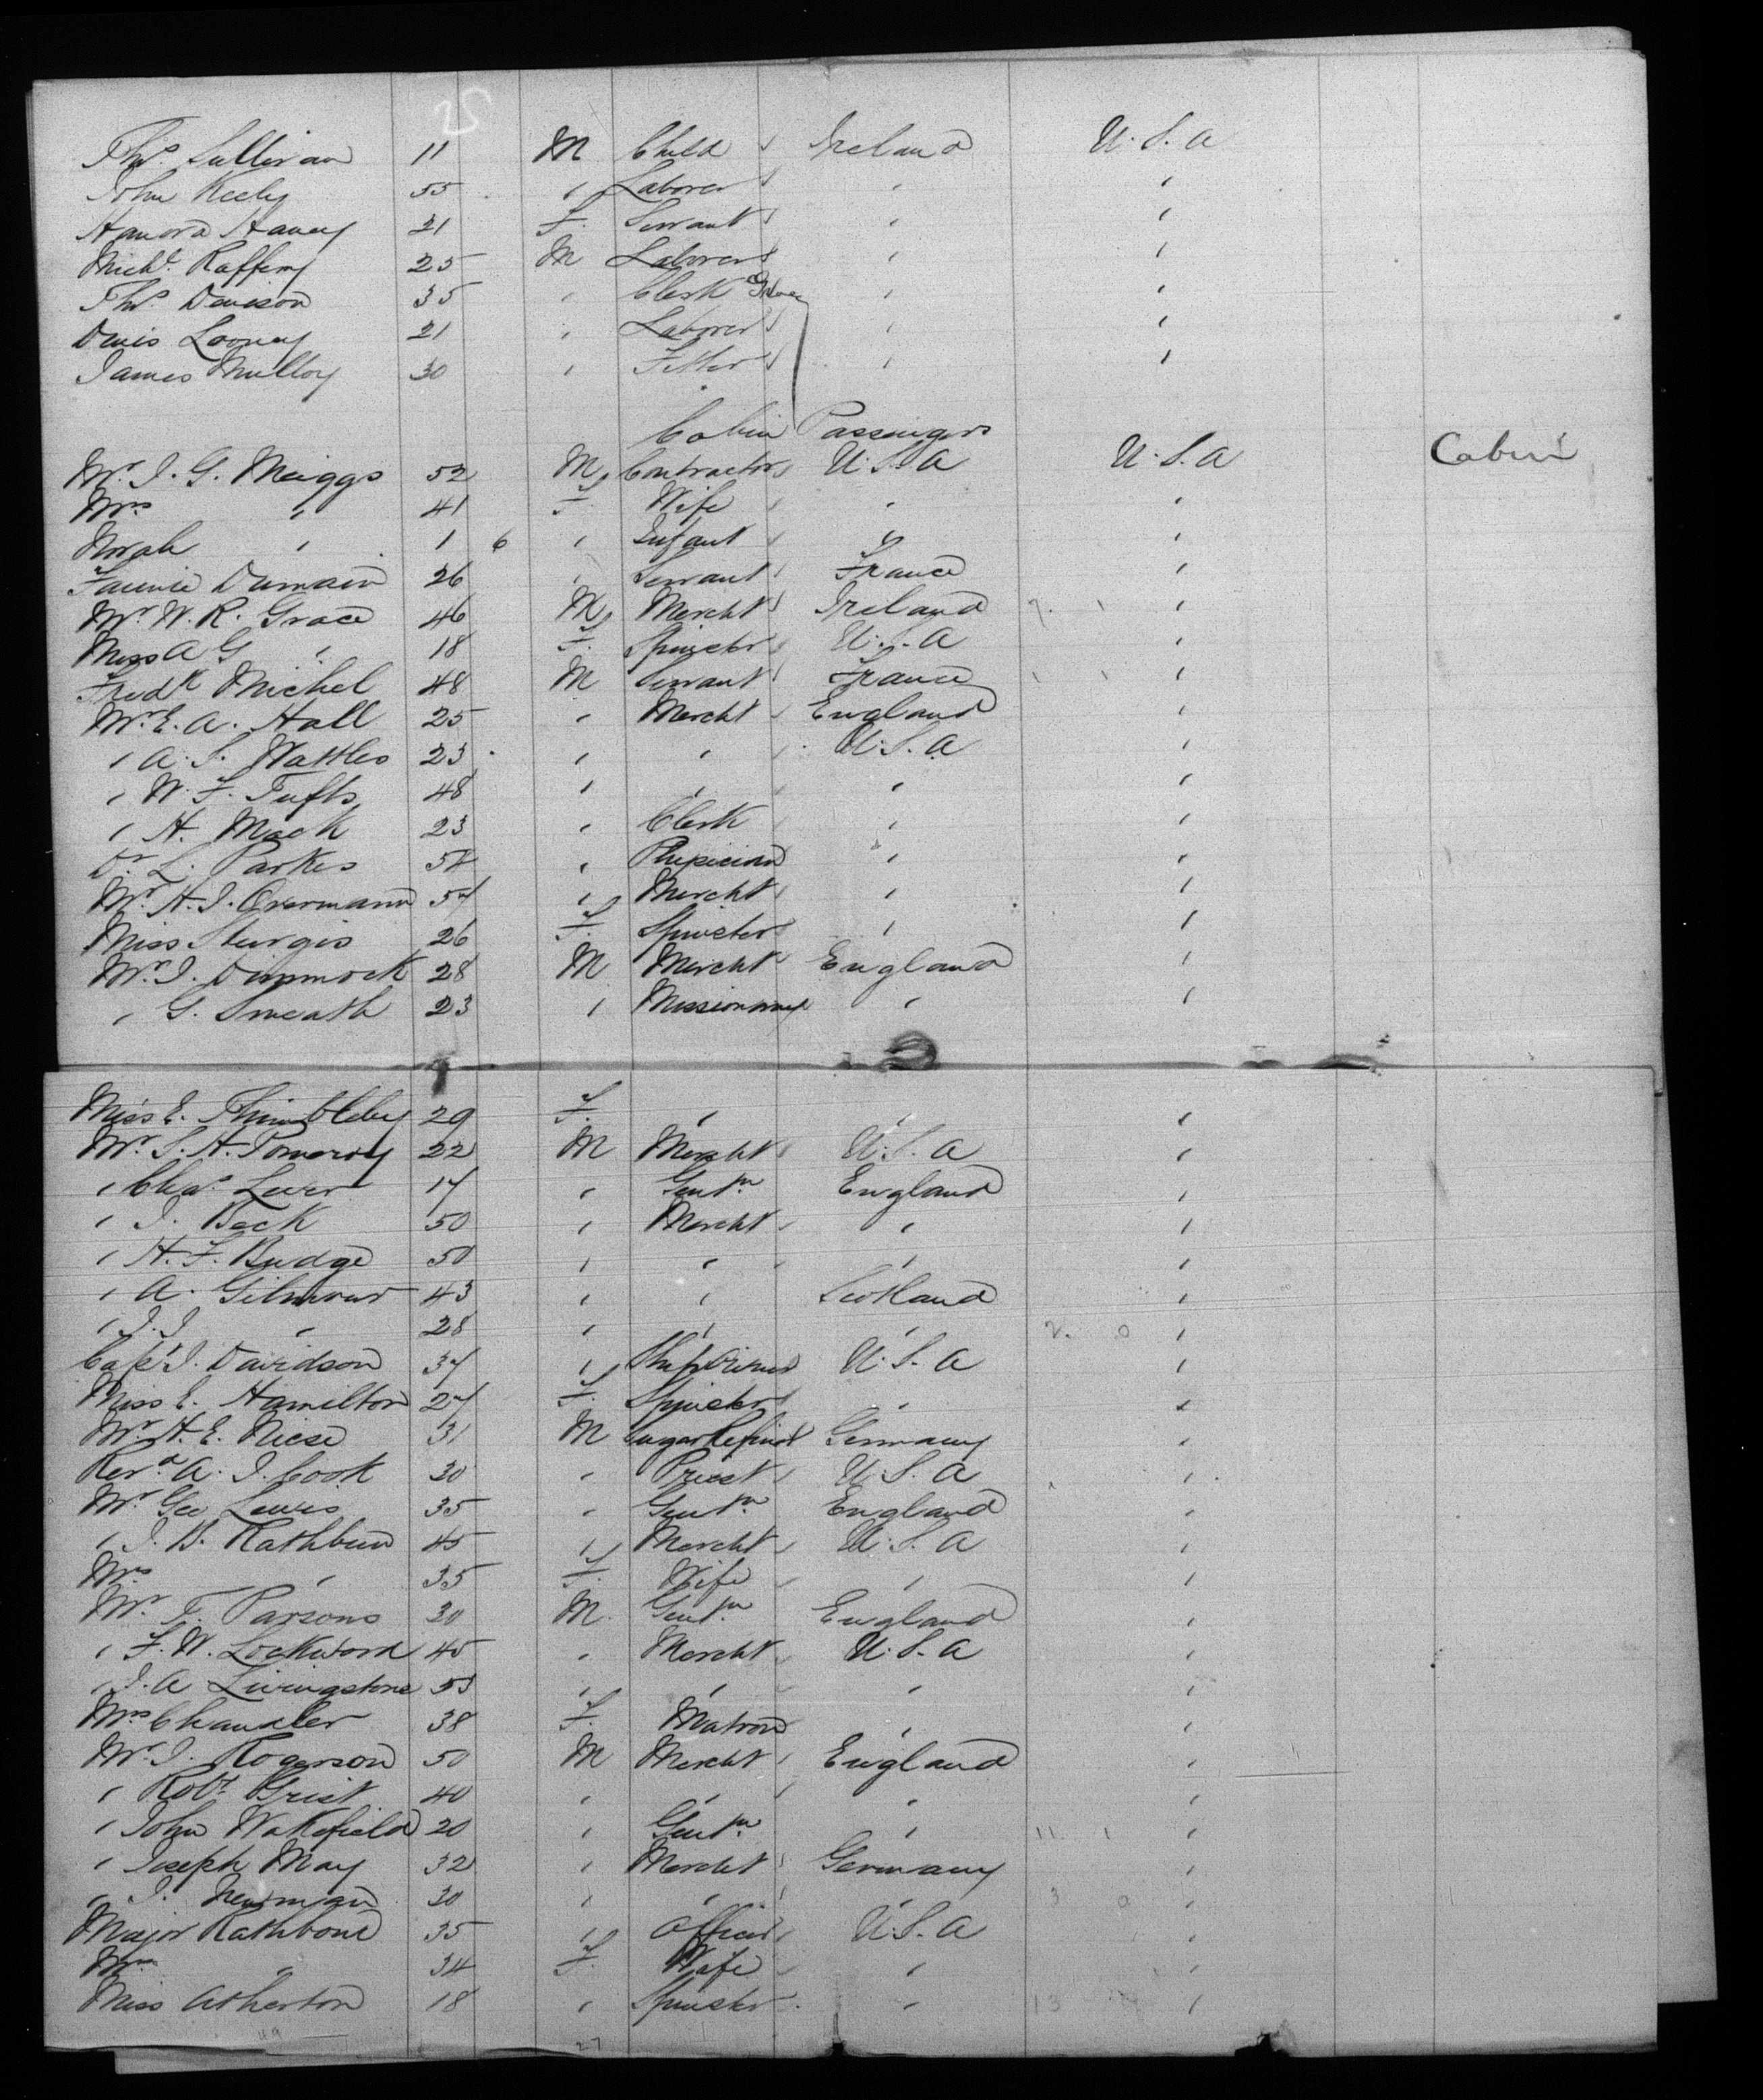 25
Thos. Sullivan 11 M Child Ireland U.S.A
John Keely 55 " Laborer " "
Hanora Haney 21 F. Servant " "
Michl. Rafferty 25 M Laborer " "
Thos. Davison 35 " Clerk " "
Denis Looney 21 " Laborer " "
James Mulloy 30 " Fitter " "
Cabin Passengers
Mr. J. G. Meiggs 52 M Contractor U.S.A U.S.A Cabin
Mrs. " 41 F. Wife " "
Norah " 1 6 " Infant " "
Fannie Dumain 26 " Servant France "
Mr. W. R. Grace 46 M Mercht Ireland "
Miss A G " 18 F. Spinster U.S.A "
Fredk Michel 48 M Servant France "
Mr. E. A. Hall 25 " Mercht England "
" A. S. Wattles 23 " " U.S.A "
" W. F. Tufts 48 " " " "
" H. Mack 23 " Clerk " "
Dr. L. Parkes 54 " Physician " "
Mr. H. J. Overmann 57 " Mercht " "
Miss Sturgis 26 F. Spinster " "
Mr. J. Dimmock 28 M Mercht England "
" G. Smeath 23 " Missionary " "
Miss E. Thimbleby 29 F. " " "
Mr. S. H. Pomeroy 22 M Mercht U.S.A "
" Chas. Lever 17 " Gentn. England "
" J. Beck 50 " Mercht " "
" H. F. Budge 50 " " " "
" A. Gilmour 43 " " Scotland "
" J. J " 28 " " " "
Capt J. Davidson 37 " U.S.A "
Miss E. Hamilton 27 F. Spinster " "
Mr. H. E. Niese 31 M Sugar Refiner Germany "
Revd. A. J. Cook 30 " Priest U.S.A "
Mr. Geo Lewis 35 " Gentn. England "
" J. B. Rathbun 45 " Mercht U.S.A "
Mrs " 35 F. Wife " "
Mr. T. Parsons 30 M. Gentn. England "
" F. W. Lockwood 45 " Mercht U.S.A "
" J. A Livingstone 53 " " " "
Mrs Chandler 38 F. Matron " "
Mr. J. Rogerson 50 M Mercht England "
" Robt Grist 40 " " " "
" John Wakefield 20 " Gentn. " "
" Joseph May 32 " Mercht Germany "
" J. Newman 30 " " " "
Major Rathbone 35 " Officer U.S.A "
Mrs " 34 F. Wife " "
Miss Atherton 18 " Spinster " "